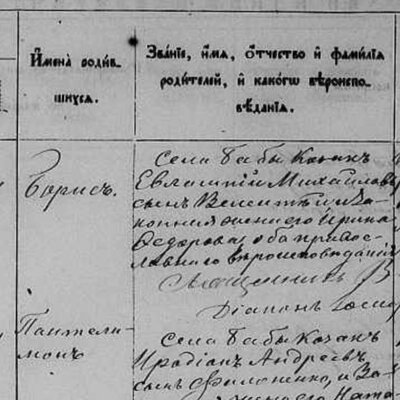 И҆мена̀ роди́в-
шихсѧ.
Зва́нїе, и҆́мѧ, ѻ҆́тчество и҆ фами́лїѧ
роди́телей, и҆ како́гѡ вѣроиспо-
вѣ́данїѧ.
Борисъ.
Села Бабы Козакъ
Евлампій Михайловъ
сынъ и за-
конная жена его Ирина
Федорова, оба право-
славнаго вѣроисповѣданія
Священникъ В
Діаконъ
Пантели-
монъ
Села Бабы Козакъ
Иродіанъ Андреевъ
сынъ Филоненко, и За-
жена его Ната-